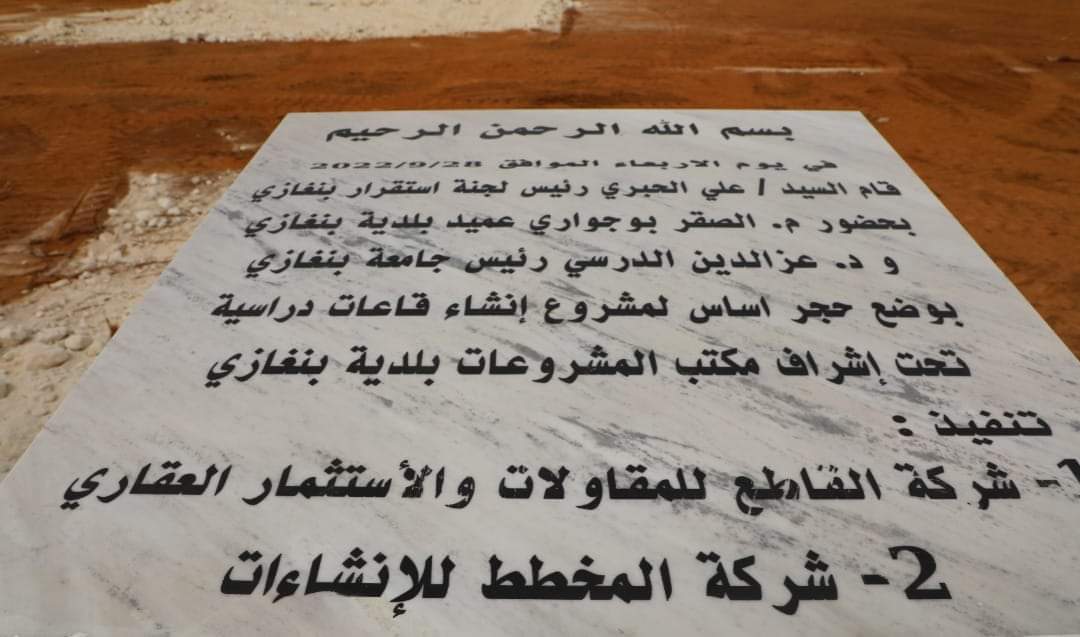 بسم الله الرحمن الرحيم
في يوم الاربعاء الموافق 2022/9/28
قام السيد / علي الحبري رئيس لجنة استقرار بنغازي
بحضور م. الصقر بوجواري عميد بلدية بنغازي
و د. عزالدين الدرسي رئيس جامعة بنغازي
بوضع حجر اساس لمشروع إنشاء قاعات دراسية
تحت إشراف مكتب المشروعات بلدية بنغازي
تنفيذ :
1- شركة القاطع للمقاولات والأستثمار العقاري
2- شركة المخطط للإنشاءات